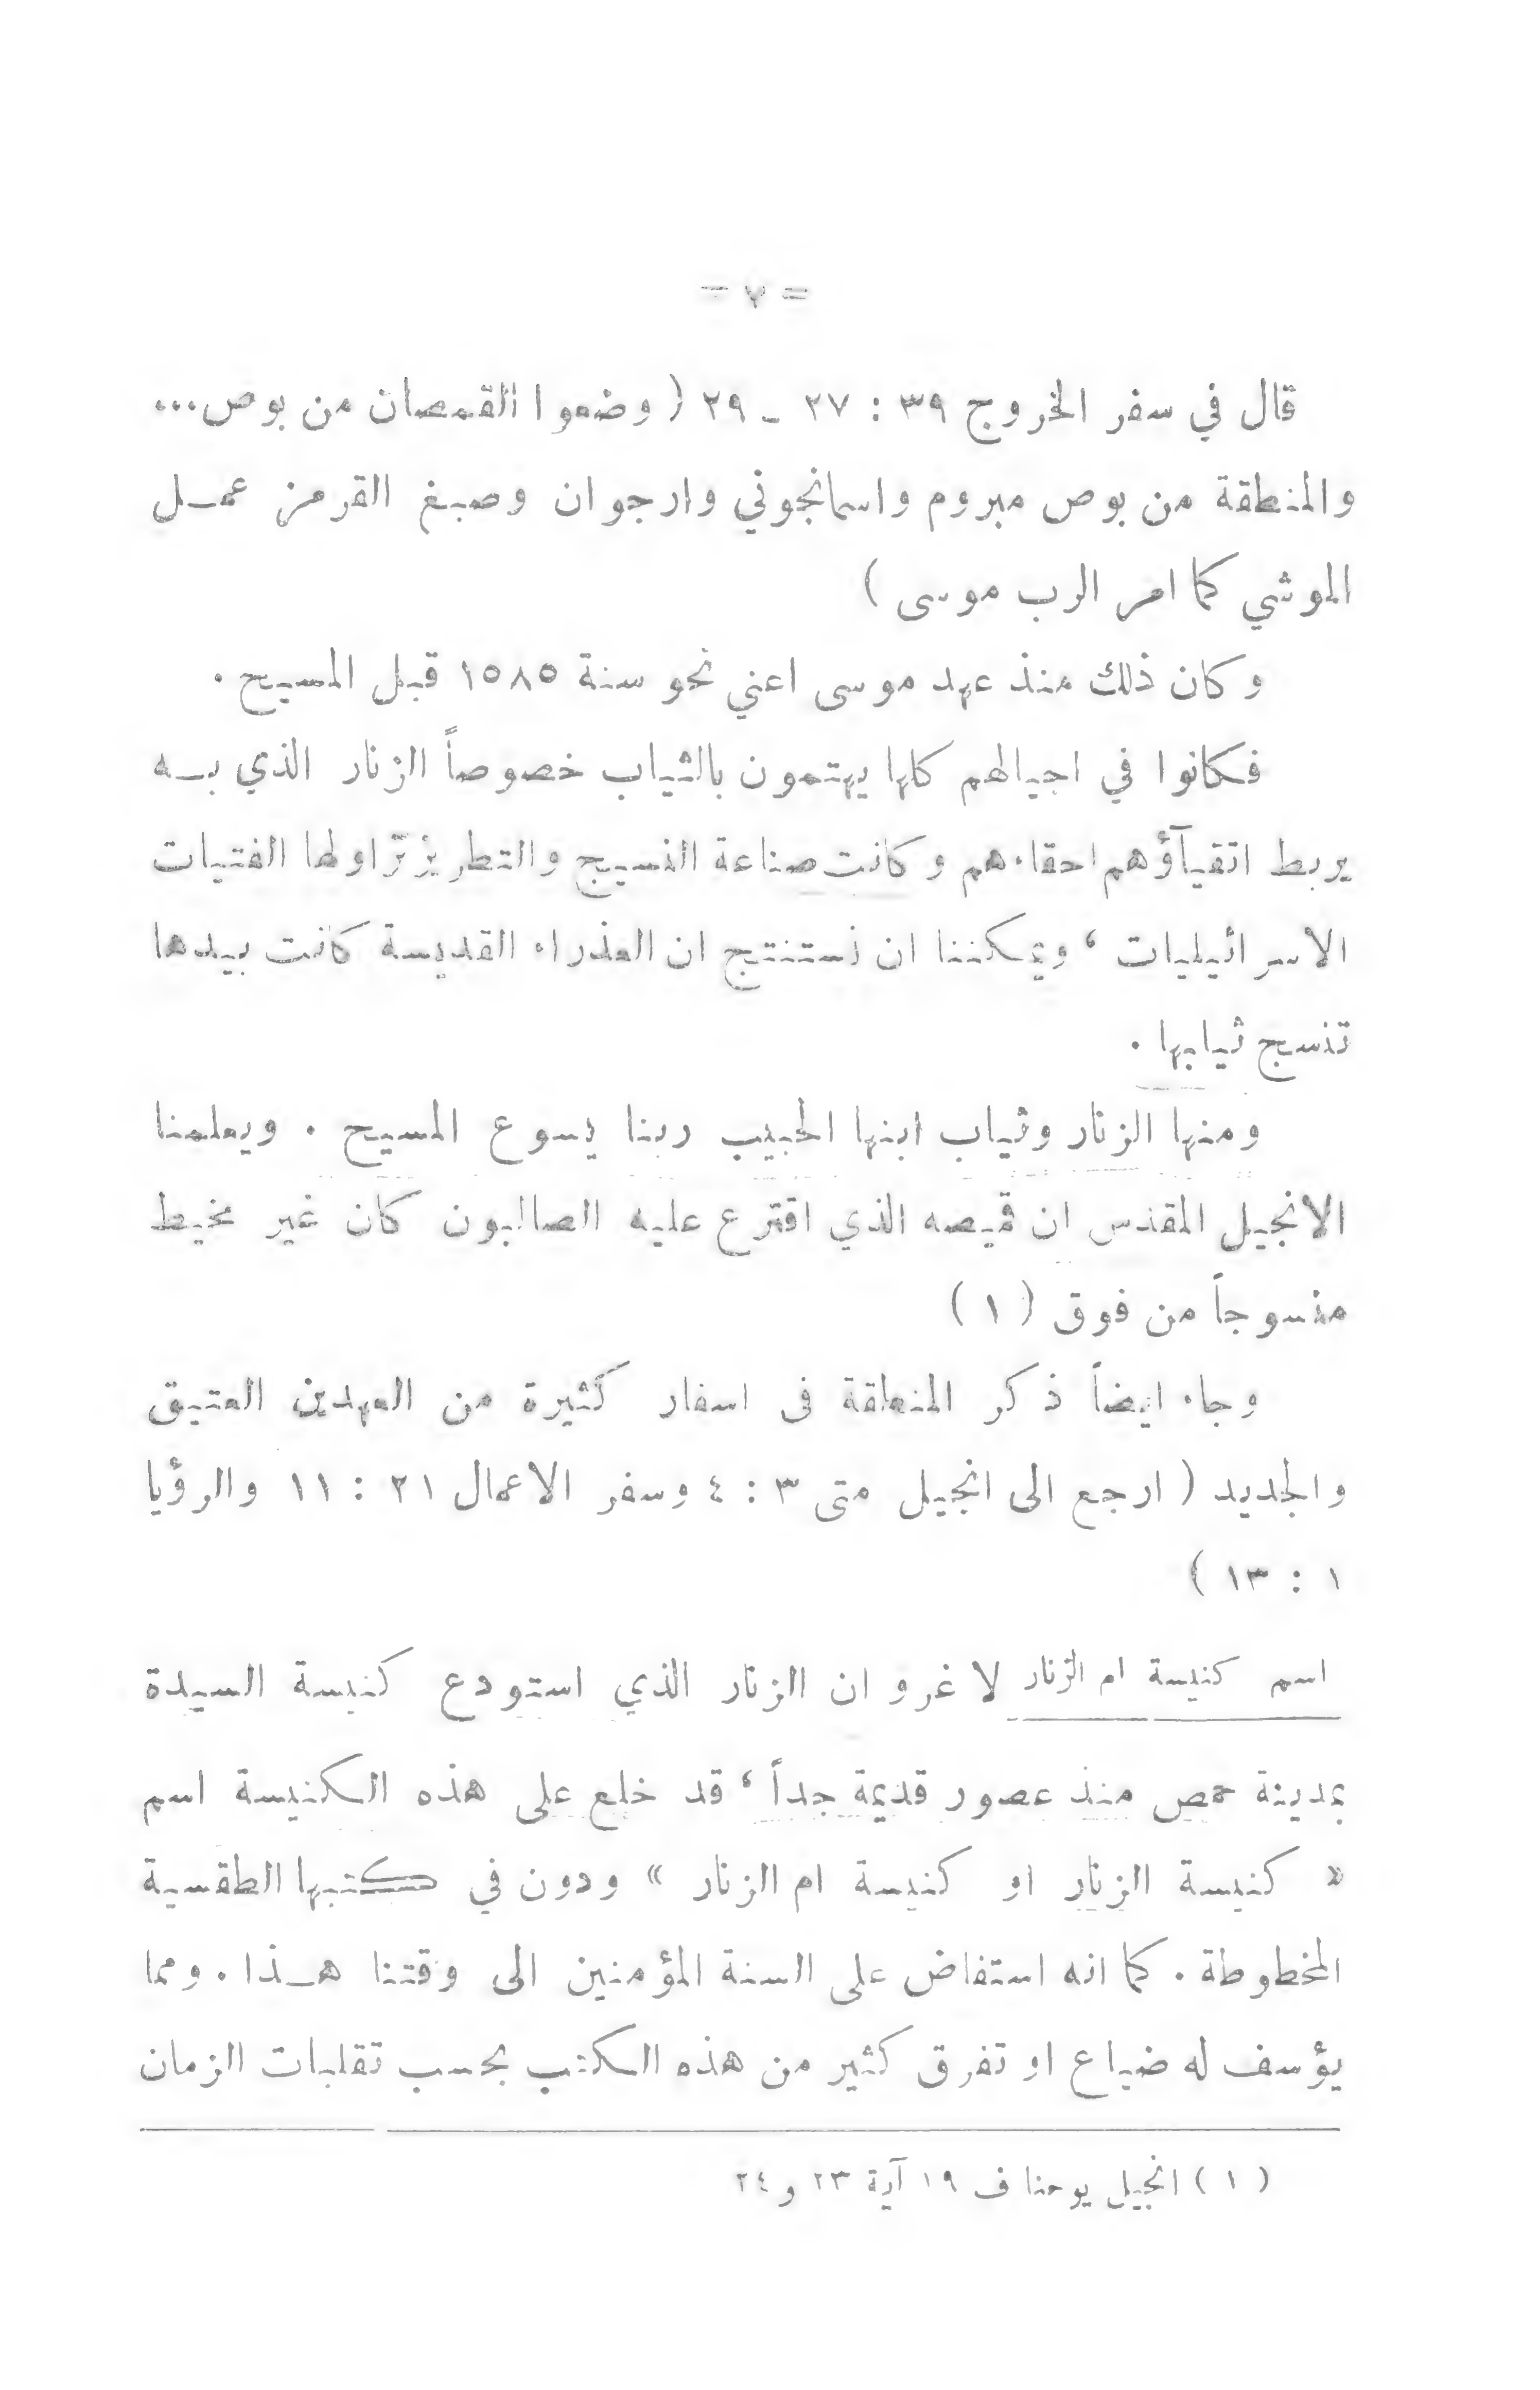 = ٧ –
قال في سفر الخروج ٣٩ : ٢٧ ـ ٢٩ ( وضعوا القمصان من بوص...
والمنطقة من بوص مبروم واسمانجوني وارجوان وصبغ القرمز عمـل
الموشي كما امر الرب موسى )
وكان ذلك منذ عهد موسى اعني نحو سنة ١٥٨٥ قبل المسيح .
فكانوا في اجيالهم كلها يهتمون بالثياب خصوصاً الزنار الذي بـه
يربط اتقيآؤهم احقاءهم وكانت صناعة النسيج والتطريز تزاولها الفتيات
الاسرائيليات ، ويمكننا ان نستنتج ان العذراء القديسة كانت بيدها
تنسج ثيابها .
ومنها الزنار وثياب ابنها الحبيب ربنا يسوع المسيح . ويعلمنا
الانجيل المقدس ان قميصه الذي اقترع عليه الصالبون كان غير مخيط
منسوجاً من فوق ( ١ )
وجاء ايضاً ذكر المنطقة في اسفار كثيرة من العهدين العتيق
والجديد ( ارجع الى انجيل متى ٣ : ٤ وسفر الاعمال ٢١ : ١١ والرؤيا
١ : ١٣ )
اسم كنيسة ام الزنار لا غرو ان الزنار الذي استودع كنيسة السيدة
بمدينة حمص منذ عصور قديمة جداً ، قد خلع على هذه الكنيسة اسم
« كنيسة الزنار او كنيسة ام الزنار » ودون في كتبها الطقسية
المخطوطة . كما انه استفاض على السنة المؤمنين الى وقتنا هـذا . ومما
يؤسف له ضياع او تفرق كثير من هذه الكتب بحسب تقلبات الزمان
( ١ ) انجيل يوحنا ف ١٩ آية ٢٣ و ٢٤